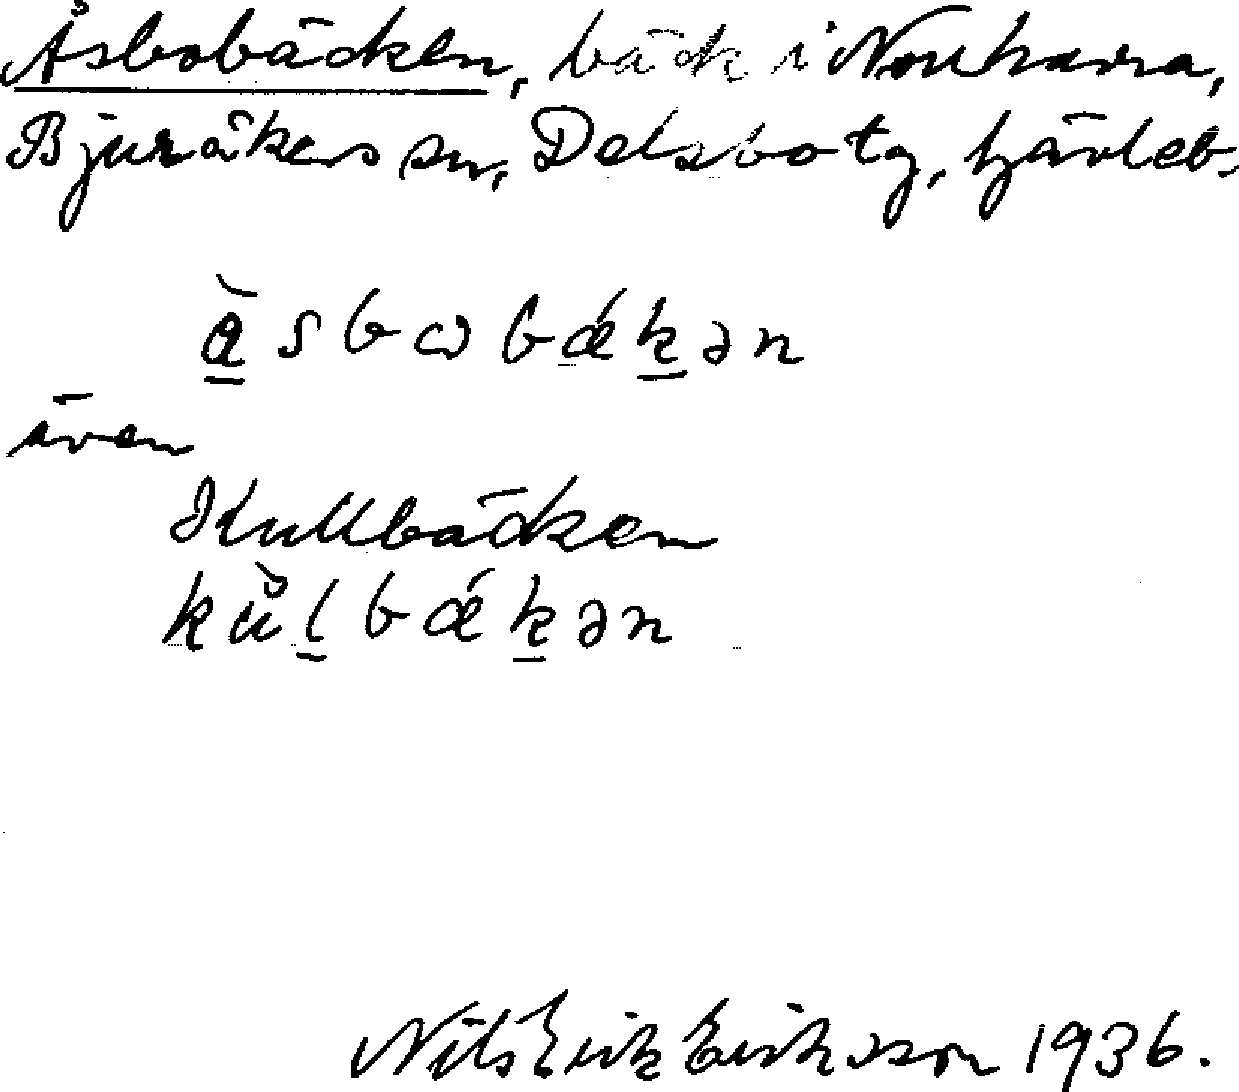 Åsbobäcken, bäck i Norrhavra,
Bjuråkers sn, Delsbo tg, Gävleb.
å̀sbωbǽḵən
även
Kullbäcken
kù̊ḻbǽḵən
Nils Erik Eriksson 1936.